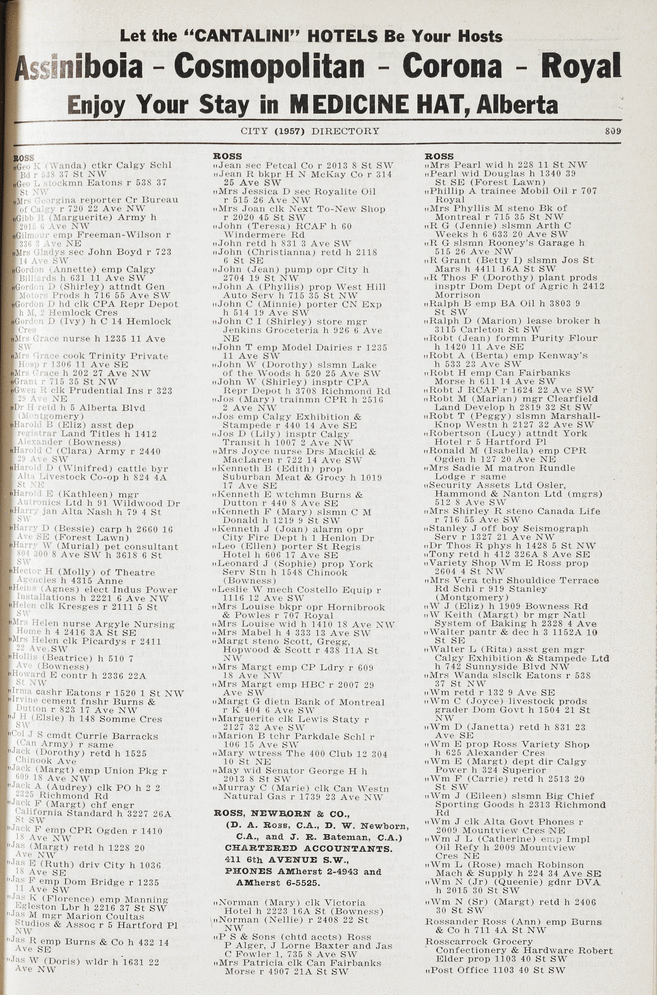 Let the "CANTALINI" HOTELS Be Your Hosts
Assiniboia - Cosmopolitan - Corona - Royal
Enjoy Your Stay in MEDICINE HAT, Alberta
CITY (1957) DIRECTORY 809
ROSS
"Geo K (Wanda) ctkr Calgy Schl
Bd r 538 37 St NW
"Geo L stockmn Eatons r 538 37
St NW
"Mrs Georgina reporter Cr Bureau
of Calgy r 720 22 Ave NW
"Gibb R (Marguerite) Army h
2015 6 Ave NW
"Gilmour emp Freeman-Wilson r
336 3 Ave NE
"Mrs Gladys sec John Boyd r 723
14 Ave SW
"Gordon (Annette) emp Calgy
Billiards h 631 11 Ave SW
"Gordon D (Shirley) attndt Gen
Motors Prods h 716 55 Ave SW
"Gordon D hd clk CPA Repr Depot
h M, 2 Hemlock Cres
"Gordon D (Ivy) h C 14 Hemlock
Cres
"Mrs Grace nurse h 1235 11 Ave
SW
"Mrs Grace cook Trinity Private
Hosp r 1306 11 Ave SE
"Mrs Grace h 202 27 Ave NW
"Grant r 715 35 St NW
"Gwen R clk Prudential Ins r 323
29 Ave NE
"Dr H retd h 5 Alberta Blvd
(Montgomery)
"Harold B (Eliz) asst dep
registrar Land Titles h 1412
Alexander (Bowness)
"Harold C (Clara) Army r 2440
29 Ave SW
"Harold D (Winifred) cattle byr
Alta Livestock Co-op h 824 4A
St NE
"Harold E (Kathleen) mgr
Autronics Ltd h 91 Wildwood Dr
"Harry jan Alta Nash h 79 4 St
SW
"Harry D (Bessie) carp h 2660 16
Ave SE (Forest Lawn)
"Harry W (Murial) pet consultant
804 300 8 Ave SW h 3618 6 St
SW
"Hector H (Molly) of Theatre
Agencies h 4315 Anne
"Heins (Agnes) elect Indus Power
Installations h 2221 6 Ave NW
"Helen clk Kresges r 2111 5 St
SW
"Mrs Helen nurse Argyle Nursing
Home h 4 2416 3A St SE
"Mrs Helen clk Picardys r 2411
22 Ave SW
"Hollis (Beatrice) h 510 7
Ave (Bowness)
"Howard E contr h 2336 22A
St NW
"Irma cashr Eatons r 1520 1 St NW
"Irvine cement fnshr Burns &
Dutton r 823 17 Ave NW
"J H (Elsie) h 148 Somme Cres
SW
"Col J S cmdt Currie Barracks
(Can Army) r same
"Jack (Dorothy) retd h 1525
Chinook Ave
"Jack (Margt) emp Union Pkg r
609 18 Ave NW
"Jack A (Audrey) clk PO h 2 2
2325 Richmond Rd
"Jack F (Margt) chf engr
California Standard h 3227 26A
St SW
"Jack F emp CPR Ogden r 1410
18 Ave NW
"Jas (Margt) retd h 1228 20
Ave NW
"Jas E (Ruth) driv City h 1036
18 Ave SE
"Jas F emp Dom Bridge r 1235
11 Ave SW
"Jas K (Florence) emp Manning
Egleston Lbr h 2216 37 St SW
"Jas M mgr Marion Coultas
Studios & Assoc r 5 Hartford Pl
NW
"Jas R emp Burns & Co h 432 14
Ave SE
"Jas W (Doris) wldr h 1631 22
Ave NW
ROSS
"Jean sec Petcal Co r 2013 8 St SW
"Jean R bkpr H N McKay Co r 314
25 Ave SW
"Mrs Jessica D sec Royalite Oil
r 515 26 Ave NW
"Mrs Joan clk Next To-New Shop
r 2020 45 St SW
"John (Teresa) RCAF h 60
Windermere Rd
"John retd h 831 3 Ave SW
"John (Christianna) retd h 2118
6 St SE
"John (Jean) pump opr City h
2704 19 St NW
"John A (Phyllis) prop West Hill
Auto Serv h 715 35 St NW
"John C (Minnie) porter CN Exp
h 514 19 Ave SW
"John C I (Shirley) store mgr
Jenkins Groceteria h 926 6 Ave
NE
"John T emp Model Dairies r 1235
11 Ave SW
"John W (Dorothy) slsmn Lake
of the Woods h 520 25 Ave SW
"John W (Shirley) insptr CPA
Repr Depot h 3708 Richmond Rd
"Jos (Mary) trainmn CPR h 2516
2 Ave NW
"Jos emp Calgy Exhibition &
Stampede r 440 14 Ave SE
"Jos D (Lily) insptr Calgy
Transit h 1007 2 Ave NW
"Mrs Joyce nurse Drs Mackid &
MacLaren r 722 14 Ave SW
"Kenneth B (Edith) prop
Suburban Meat & Grocy h 1019
17 Ave SE
"Kenneth E wtchmn Burns &
Dutton r 440 8 Ave SE
"Kenneth F (Mary) slsmn C M
Donald h 1219 9 St SW
"Kenneth J (Joan) alarm opr
City Fire Dept h 1 Henlon Dr
"Leo (Ellen) porter St Regis
Hotel h 606 17 Ave SE
"Leonard J (Sophie) prop York
Serv Stn h 1548 Chinook
(Bowness)
"Leslie W mech Costello Equip r
1116 12 Ave SW
"Mrs Louise bkpr opr Hornibrook
& Powles r 707 Royal
"Mrs Louise wid h 1410 18 Ave NW
"Mrs Mabel h 4 333 13 Ave SW
"Margt steno Scott, Gregg,
Hopwood & Scott r 438 11A St
NW
"Mrs Margt emp CP Ldry r 609
18 Ave NW
"Mrs Margt emp HBC r 2007 29
Ave SW
"Margt G dietn Bank of Montreal
r K 404 6 Ave SW
"Marguerite clk Lewis Staty r
2127 32 Ave SW
"Marion tchr Parkdale Schl r
106 15 Ave SW
"Mary wtress The 400 Club 12 304
10 St NE
"May wid Senator George H h
2013 8 St SW
"Murray C (Marie) clk Can Westn
Natural Gas r 1739 23 Ave NW
ROSS, NEWBORN & CO.,
(D. A. Ross, C.A., D. W. Newborn,
C.A., and J. R. Bateman, C.A.)
CHARTERED ACCOUNTANTS.
411 6th AVENUE S.W.,
PHONES AMherst 2-4943 and
AMherst 6-5525.
"Norman (Mary) clk Victoria
Hotel h 2223 16A St (Bowness)
"Norman (Nellie) r 2408 22 St
NW
"P S & Sons (chtd accts) Ross
P Alger, J Lorne Baxter and Jas
C Fowler 1, 735 8 Ave SW
"Mrs Patricia clk Can Fairbanks
Morse r 4907 21A St SW
ROSS
"Mrs Pearl wid h 228 11 St NW
"Pearl wid Douglas h 1340 39
St SE (Forest Lawn)
"Phillip A trainee Mobil Oil r 707
Royal
"Mrs Phyllis M steno Bk of
Montreal r 715 35 St NW
"R G (Jennie) slsmn Arth C
Weeks h 6 633 20 Ave SW
"R G slsmn Rooney's Garage h
515 26 Ave NW
"R Grant (Betty I) slsmn Jos St
Mars h 4411 16A St SW
"R Thos F (Dorothy) plant prods
insptr Dom Dept of Agric h 2412
Morrison
"Ralph B emp BA Oil h 3803 9
St SW
"Ralph D (Marion) lease broker h
3115 Carleton St SW
"Robt (Jean) formn Purity Flour
h 1420 11 Ave SE
"Robt A (Berta) emp Kenway's
h 533 23 Ave SW
"Robt H emp Can Fairbanks
Morse h 611 14 Ave SW
"Robt J RCAF r 1624 22 Ave SW
"Robt M (Marian) mgr Clearfield
Land Develop h 2819 32 St SW
"Robt T (Peggy) slsmn Marshall-
Knop Westn h 2127 32 Ave SW
"Robertson (Lucy) attndt York
Hotel r 5 Hartford Pl
"Ronald M (Isabella) emp CPR
Ogden h 127 20 Ave NE
"Mrs Sadie M matron Rundle
Lodge r same
"Security Assets Ltd Osler,
Hammond & Nanton Ltd (mgrs)
512 8 Ave SW
"Mrs Shirley R steno Canada Life
r 716 55 Ave SW
"Stanley J off boy Seismograph
Serv r 1327 21 Ave NW
"Dr Thos R phys h 1428 5 St NW
"Tony retd h 412 326A 8 Ave SE
"Variety Shop Wm E Ross prop
2604 4 St NW
"Mrs Vera tchr Shouldice Terrace
Rd Schl r 919 Stanley
(Montgomery)
"W J (Eliz) h 1909 Bowness Rd
"W Keith (Margt) br mgr Natl
System of Baking h 2328 4 Ave
"Walter pantr & dec h 3 1152A 10
St SE
"Walter L (Rita) asst gen mgr
Calgy Exhibition & Stampede Ltd
h 742 Sunnyside Blvd NW
"Mrs Wanda slsclk Eatons r 538
37 St NW
"Wm retd r 132 9 Ave SE
"Wm C (Joyce) livestock prods
grader Dom Govt h 1504 21 St
NW
"Wm D (Janetta) retd h 831 23
Ave SE
"Wm E prop Ross Variety Shop
h 625 Alexander Cres
"Wm E (Margt) dept dir Calgy
Power h 324 Superior
"Wm F (Carrie) retd h 2513 20
St SW
"Wm J (Eileen) slsmn Big Chief
Sporting Goods h 2313 Richmond
Rd
"Wm J clk Alta Govt Phones r
2009 Mountview Cres NE
"Wm J L (Catherine) emp Impl
Oil Refy h 2009 Mountview
Cres NE
"Wm L (Rose) mach Robinson
Mach & Supply h 224 34 Ave SE
"Wm N (Jr) (Queenie) gdnr DVA
h 2015 30 St SW
"Wm N (Sr) (Margt) retd h 2406
30 St SW
Rossander Ross (Ann) emp Burns
& Co h 711 4A St NW
Rosscarrock Grocery
Confectionery & Hardware Robert
Elder prop 1103 40 St SW
"Post Office 1103 40 St SW